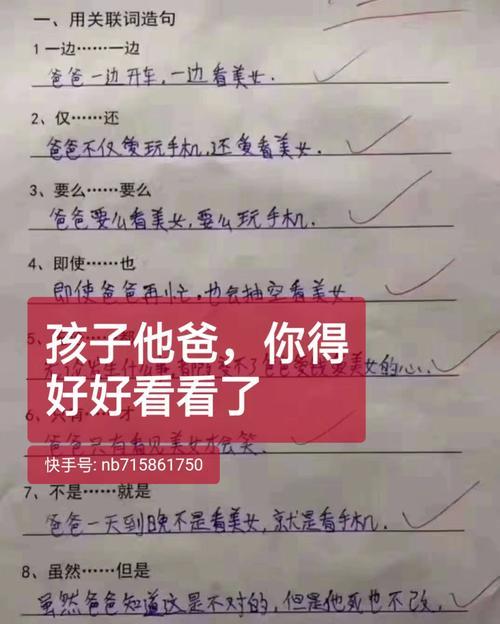 一、用关联词造句
1 一边……一边
爸爸一边开车,一边看美女.
2、仅……还
爸爸不仅爱玩手机,还爱看美女.
3、要么……要么
爸爸要么看美女,要么玩手机.
4、即使……也
即使爸爸再忙,也会抽空看美女.
孩子他爸，你得
好好看看了
5、
美女的心.
6、只有……才
爸爸只有看见美女才会笑.
快手号: nb715861750
7、不是……就是
爸爸一天到晚不是看美女,就是看手机.
8、虽然……但是
虽然爸爸知道这是不对的,但是他死也不改.